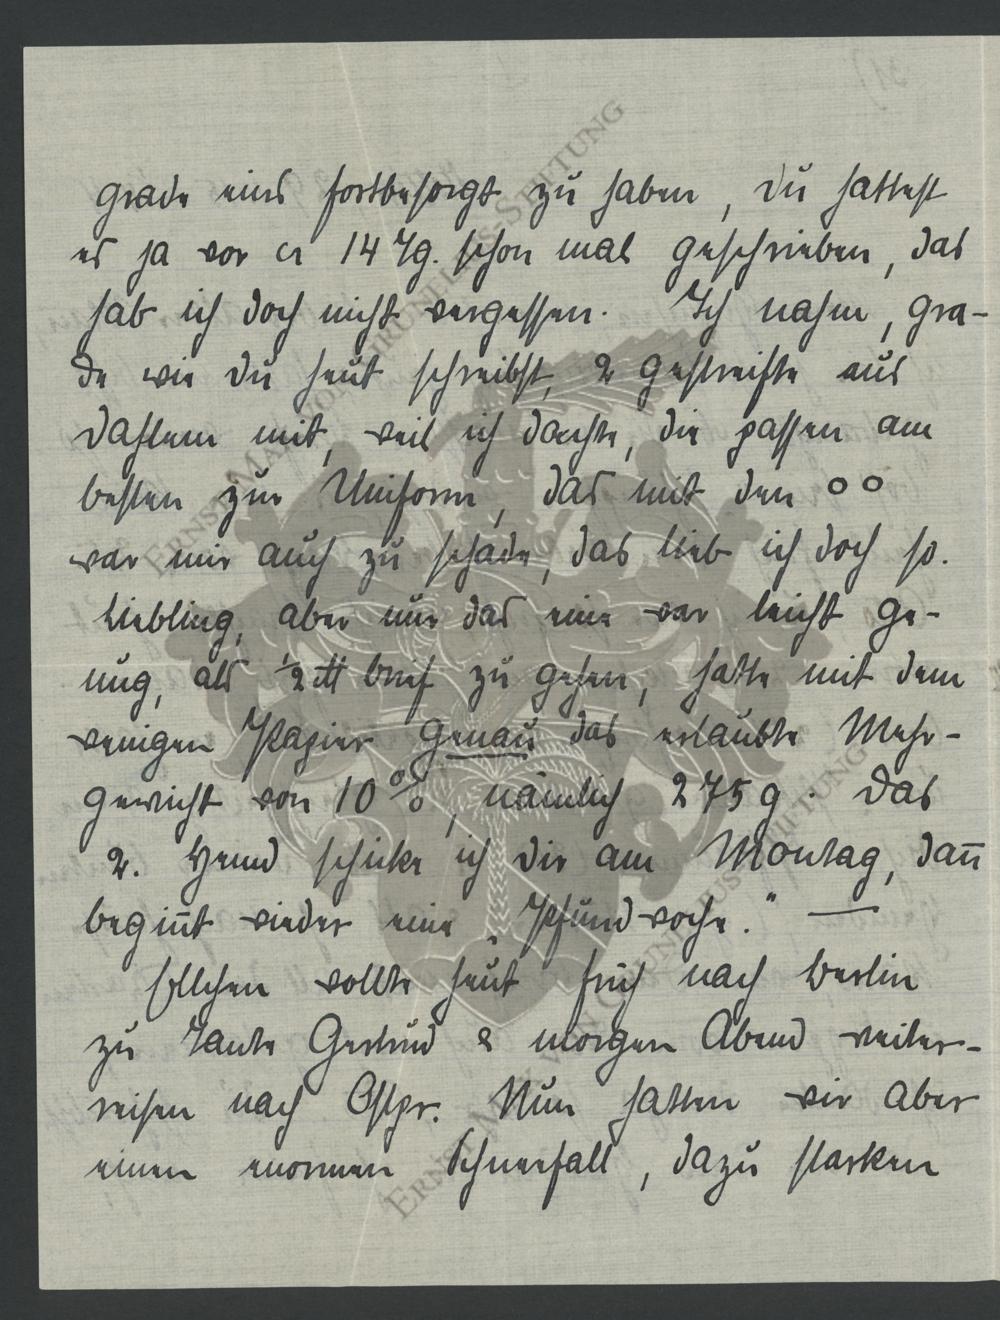 grade eins fortbesorgt zu haben, Du hattest
es ja vor ca 14 Tg. schon mal geschrieben, das
hab ich doch nicht vergessen. Ich nahm, gra-
de wie Du heut schreibst, 2 gestreifte aus
Dahlem mit, weil ich dachte, die passen am
besten zur Uniform, das mit den o o
war mir auch zu schade, das lieb ich doch so.
Liebling, aber nur das eine war leicht ge-
nug, als ½ ℔ brief zu gehen, hatte mit dem
wenigen Papier genau das erlaubte Mehr-
gewicht von 10 %, nämlich 275 g. Das
2. Hemd schicke ich Dir am Montag, dan̄
begin̄t wieder eine „Pfundwoche." —
Ellchen wollte heut früh nach Berlin
zu Tante Gertrud & morgen Abend weiter-
reisen nach Ostpr. Nun hatten wir aber
einen enormen Schneefall, dazu starken
ERNST MAX VON GRUNELIUS-STIFTUNG
ERNST MAX VON GRUNELIUS-STIFTUNG